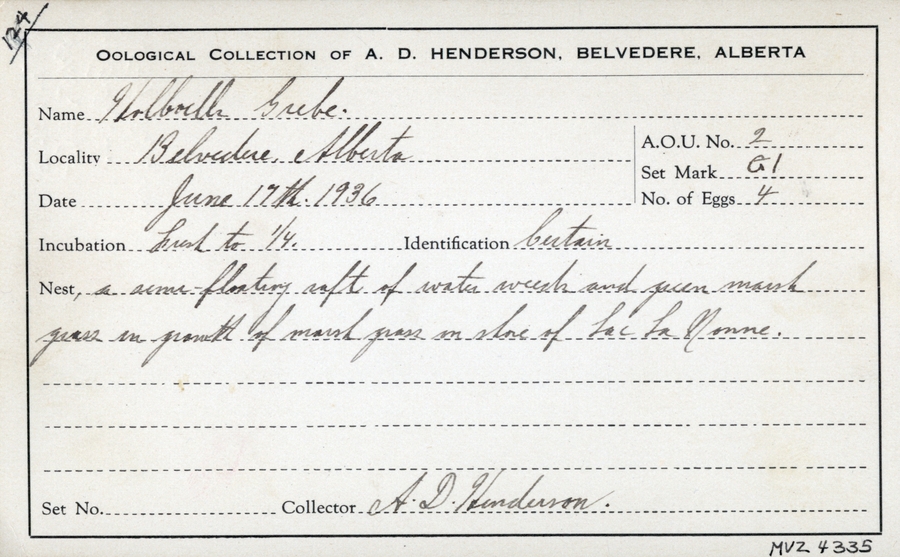 124
OOLOGICAL COLLECTION OF A. D. HENDERSON, BELVEDERE, ALBERTA
Name Holboells Grebe.
Locality Belvedere, Alberta
A.O.U. No. 2
Set Mark G1
Date June 17th. 1936
No. of Eggs 4
Incubation fresh to 1/4.
Identification Certain
Nest, a semi-floating raft of water weeds and green marsh
grass in growth of marsh grass on shore of Lac La Nonne.
Set No.
Collector A. D. Henderson.
MVZ 4335